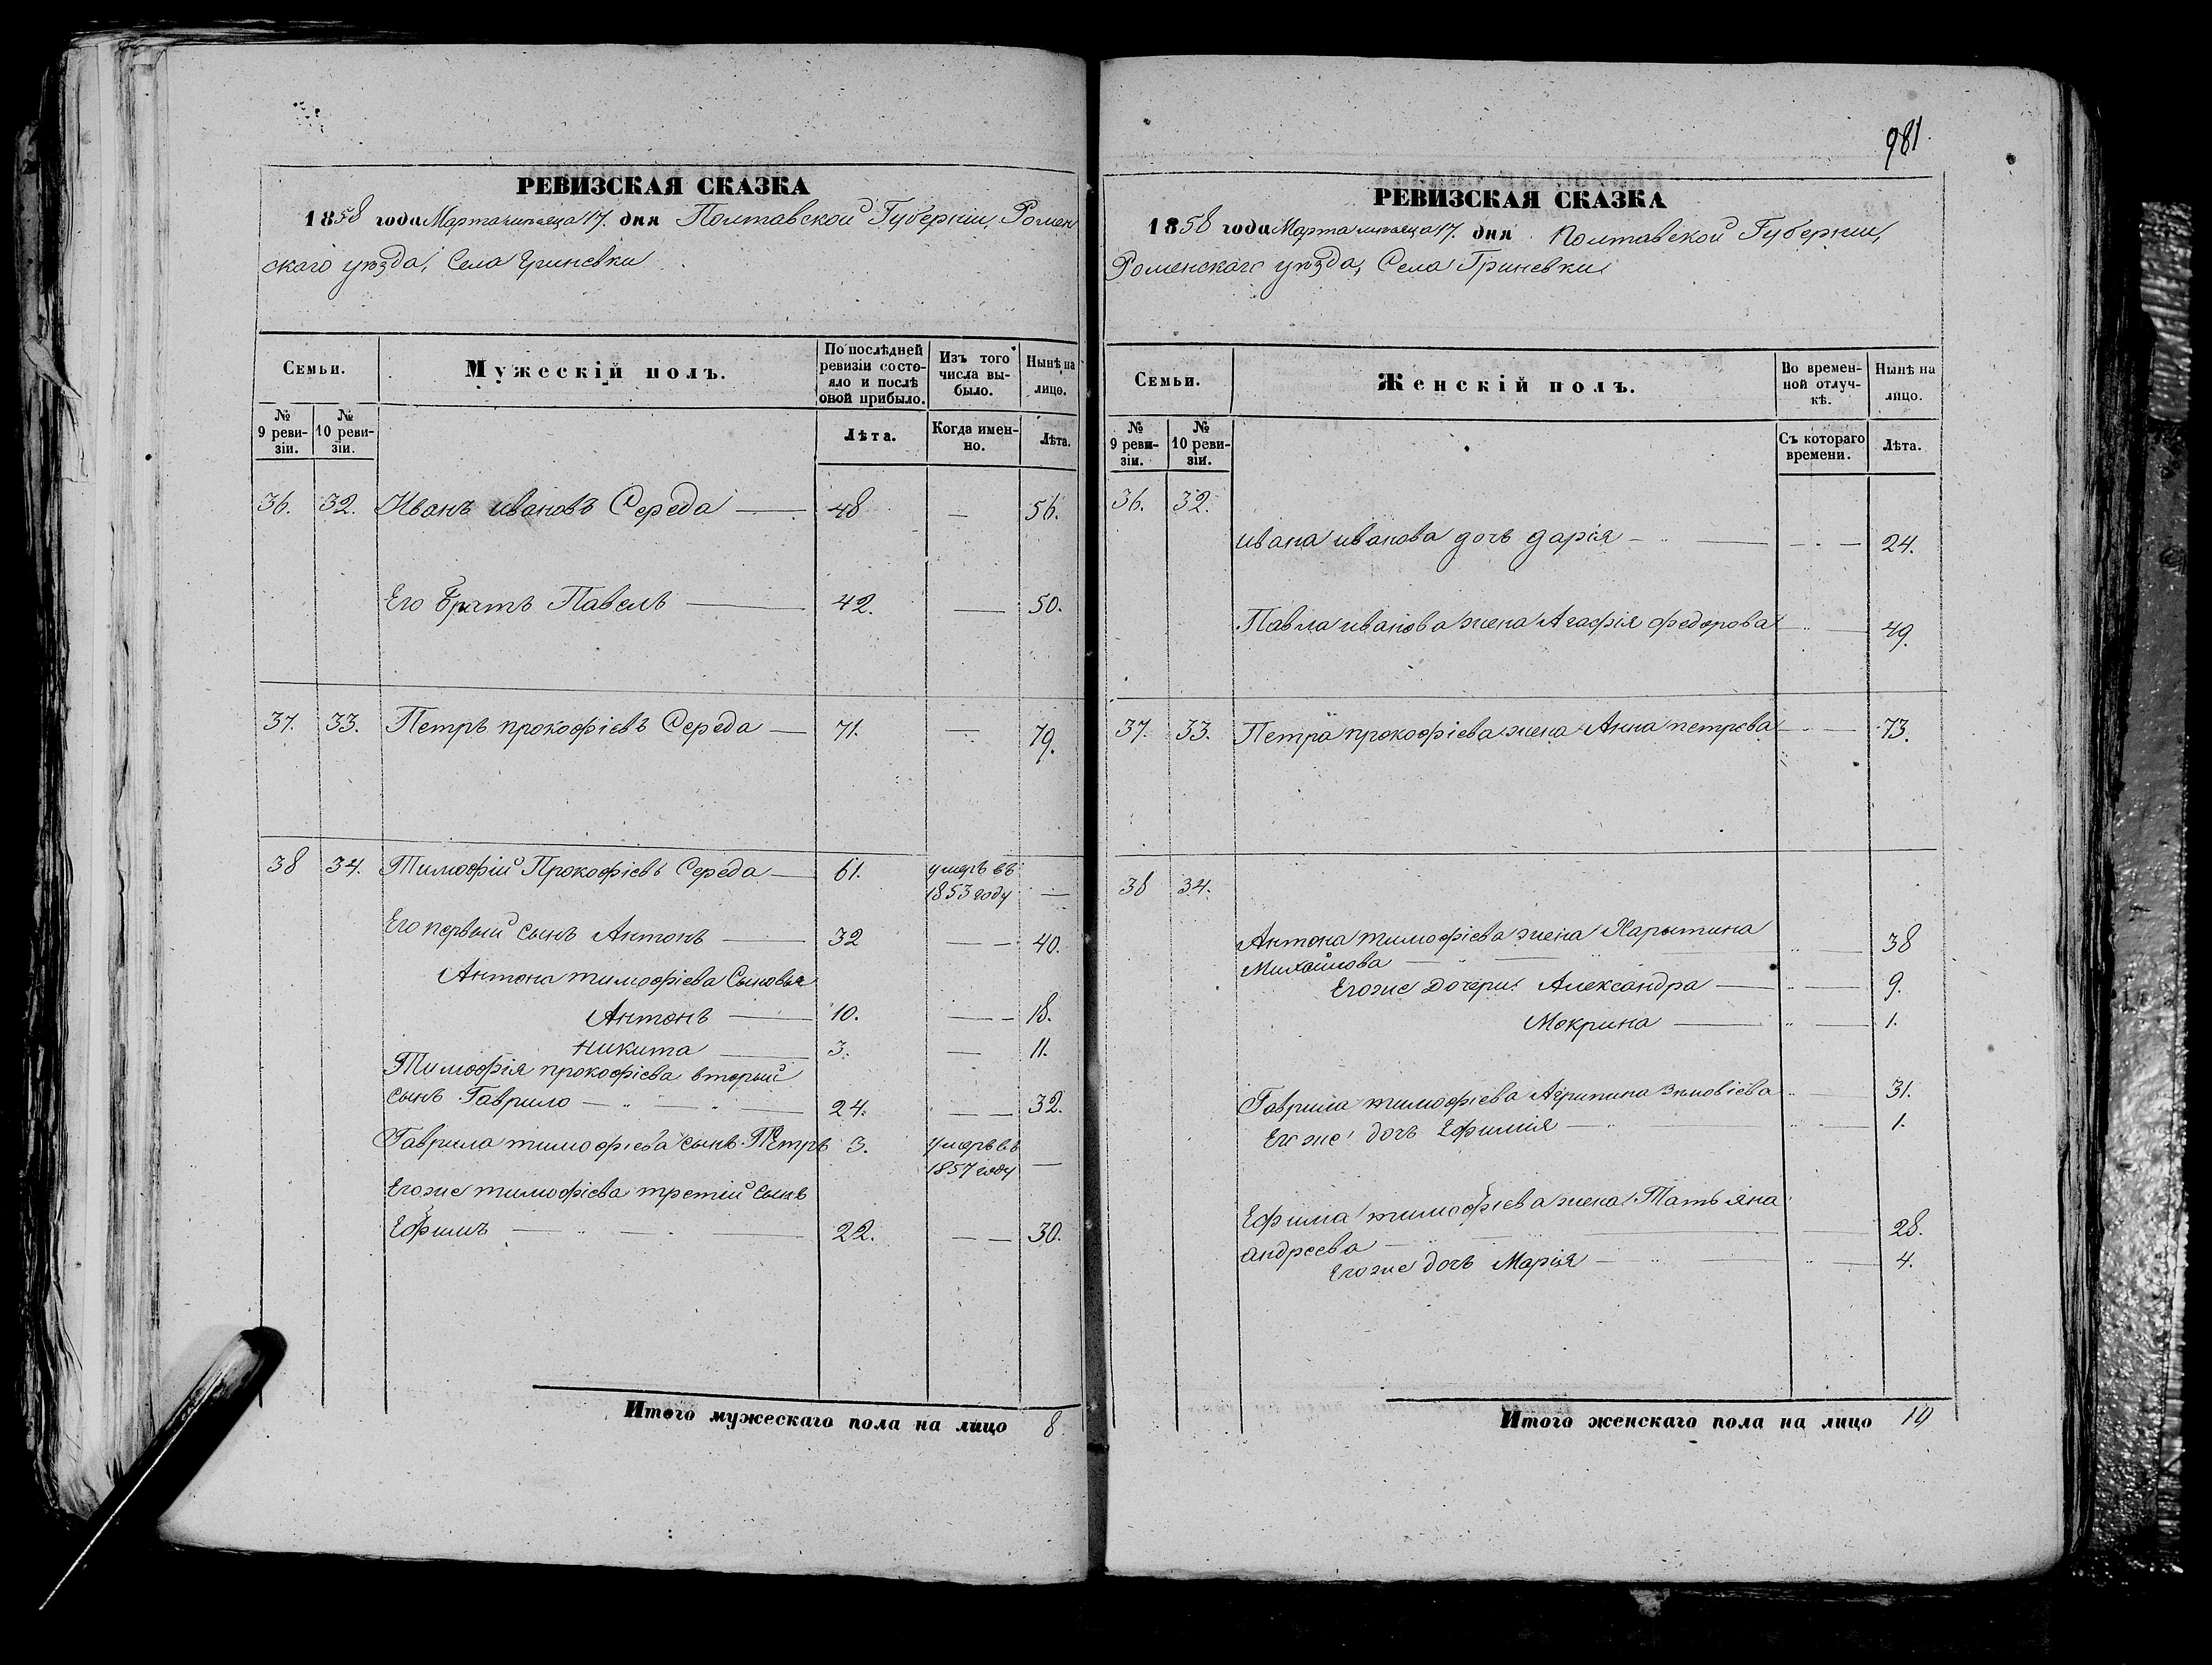 РЕВИЗСКАЯ СКАЗКА
1858 года Марта мѣсяца 17. дня Полтавской Губерніи, Ромен
скаго уѣзда, Села Гриневки
Семьи.
Мужескій полъ.
По послѣдней ревизіи состо-яло и послѣ оной прибыло.
Изъ того числа вы-было.
Нынѣ на лицо.
№ 9 реви-зіи.
№ 10 реви-зіи.
Лѣта.
Когда имен-но.
Лѣта.
36. 32. Иванъ ивановъ Середа — 48 — 56.
Его братъ Павелъ — 42. — 50.
37. 33. Петръ прокофіевъ Середа — 71. — 79.
38 34. Тимофій Прокофіевъ Середа — 61. умеръ въ
1853 году —
Его первый сынъ Антонъ — 32 — — 40.
Антона тимофіева Сыновья
Антонъ — 10. — — 18.
никита — 3. — 11.
Тимофія прокофіева вторый
сынъ Гаврило — 24. — — 32.
Гаврила тимофіева сынъ Петръ 3. умеръ въ
1857 году —
Егоже тимофіева третій сынъ
Ефимъ — 22. — — 30.
Итого мужескаго пола на лицо 8
981
РЕВИЗСКАЯ СКАЗКА
1858 года Марта мѣсяца 17. дня Полтавской Губерніи,
Роменскаго уѣзда, Села Гриневки
Семьи.
Женскій полъ.
Во времен-ной отлуч-кѣ.
Нынѣ на лицо.
№ 9 реви-зіи.
№ 10 реви-зіи.
Съ котораго времени.
Лѣта.
36. 32.
ивана иванова дочь дарія — — 24.
Павла иванова жена Агафія федорова — 49.
37. 33. Петра прокофіева жена Анна петрова — 73.
38 34.
Антона тимофіева жена Харытина — 38
Михайлова —
Егоже дочери: Александра — — 9.
Мокрина — — 1.
Гаврила тимофіева Агрипина Зиновіева — 31.
Егоже дочь Ефимія — — 1.
Ефима тимофіева жена Татьяна
андреева — — 28.
Егоже дочь Марія — — 4.
Итого женскаго пола на лицо 10